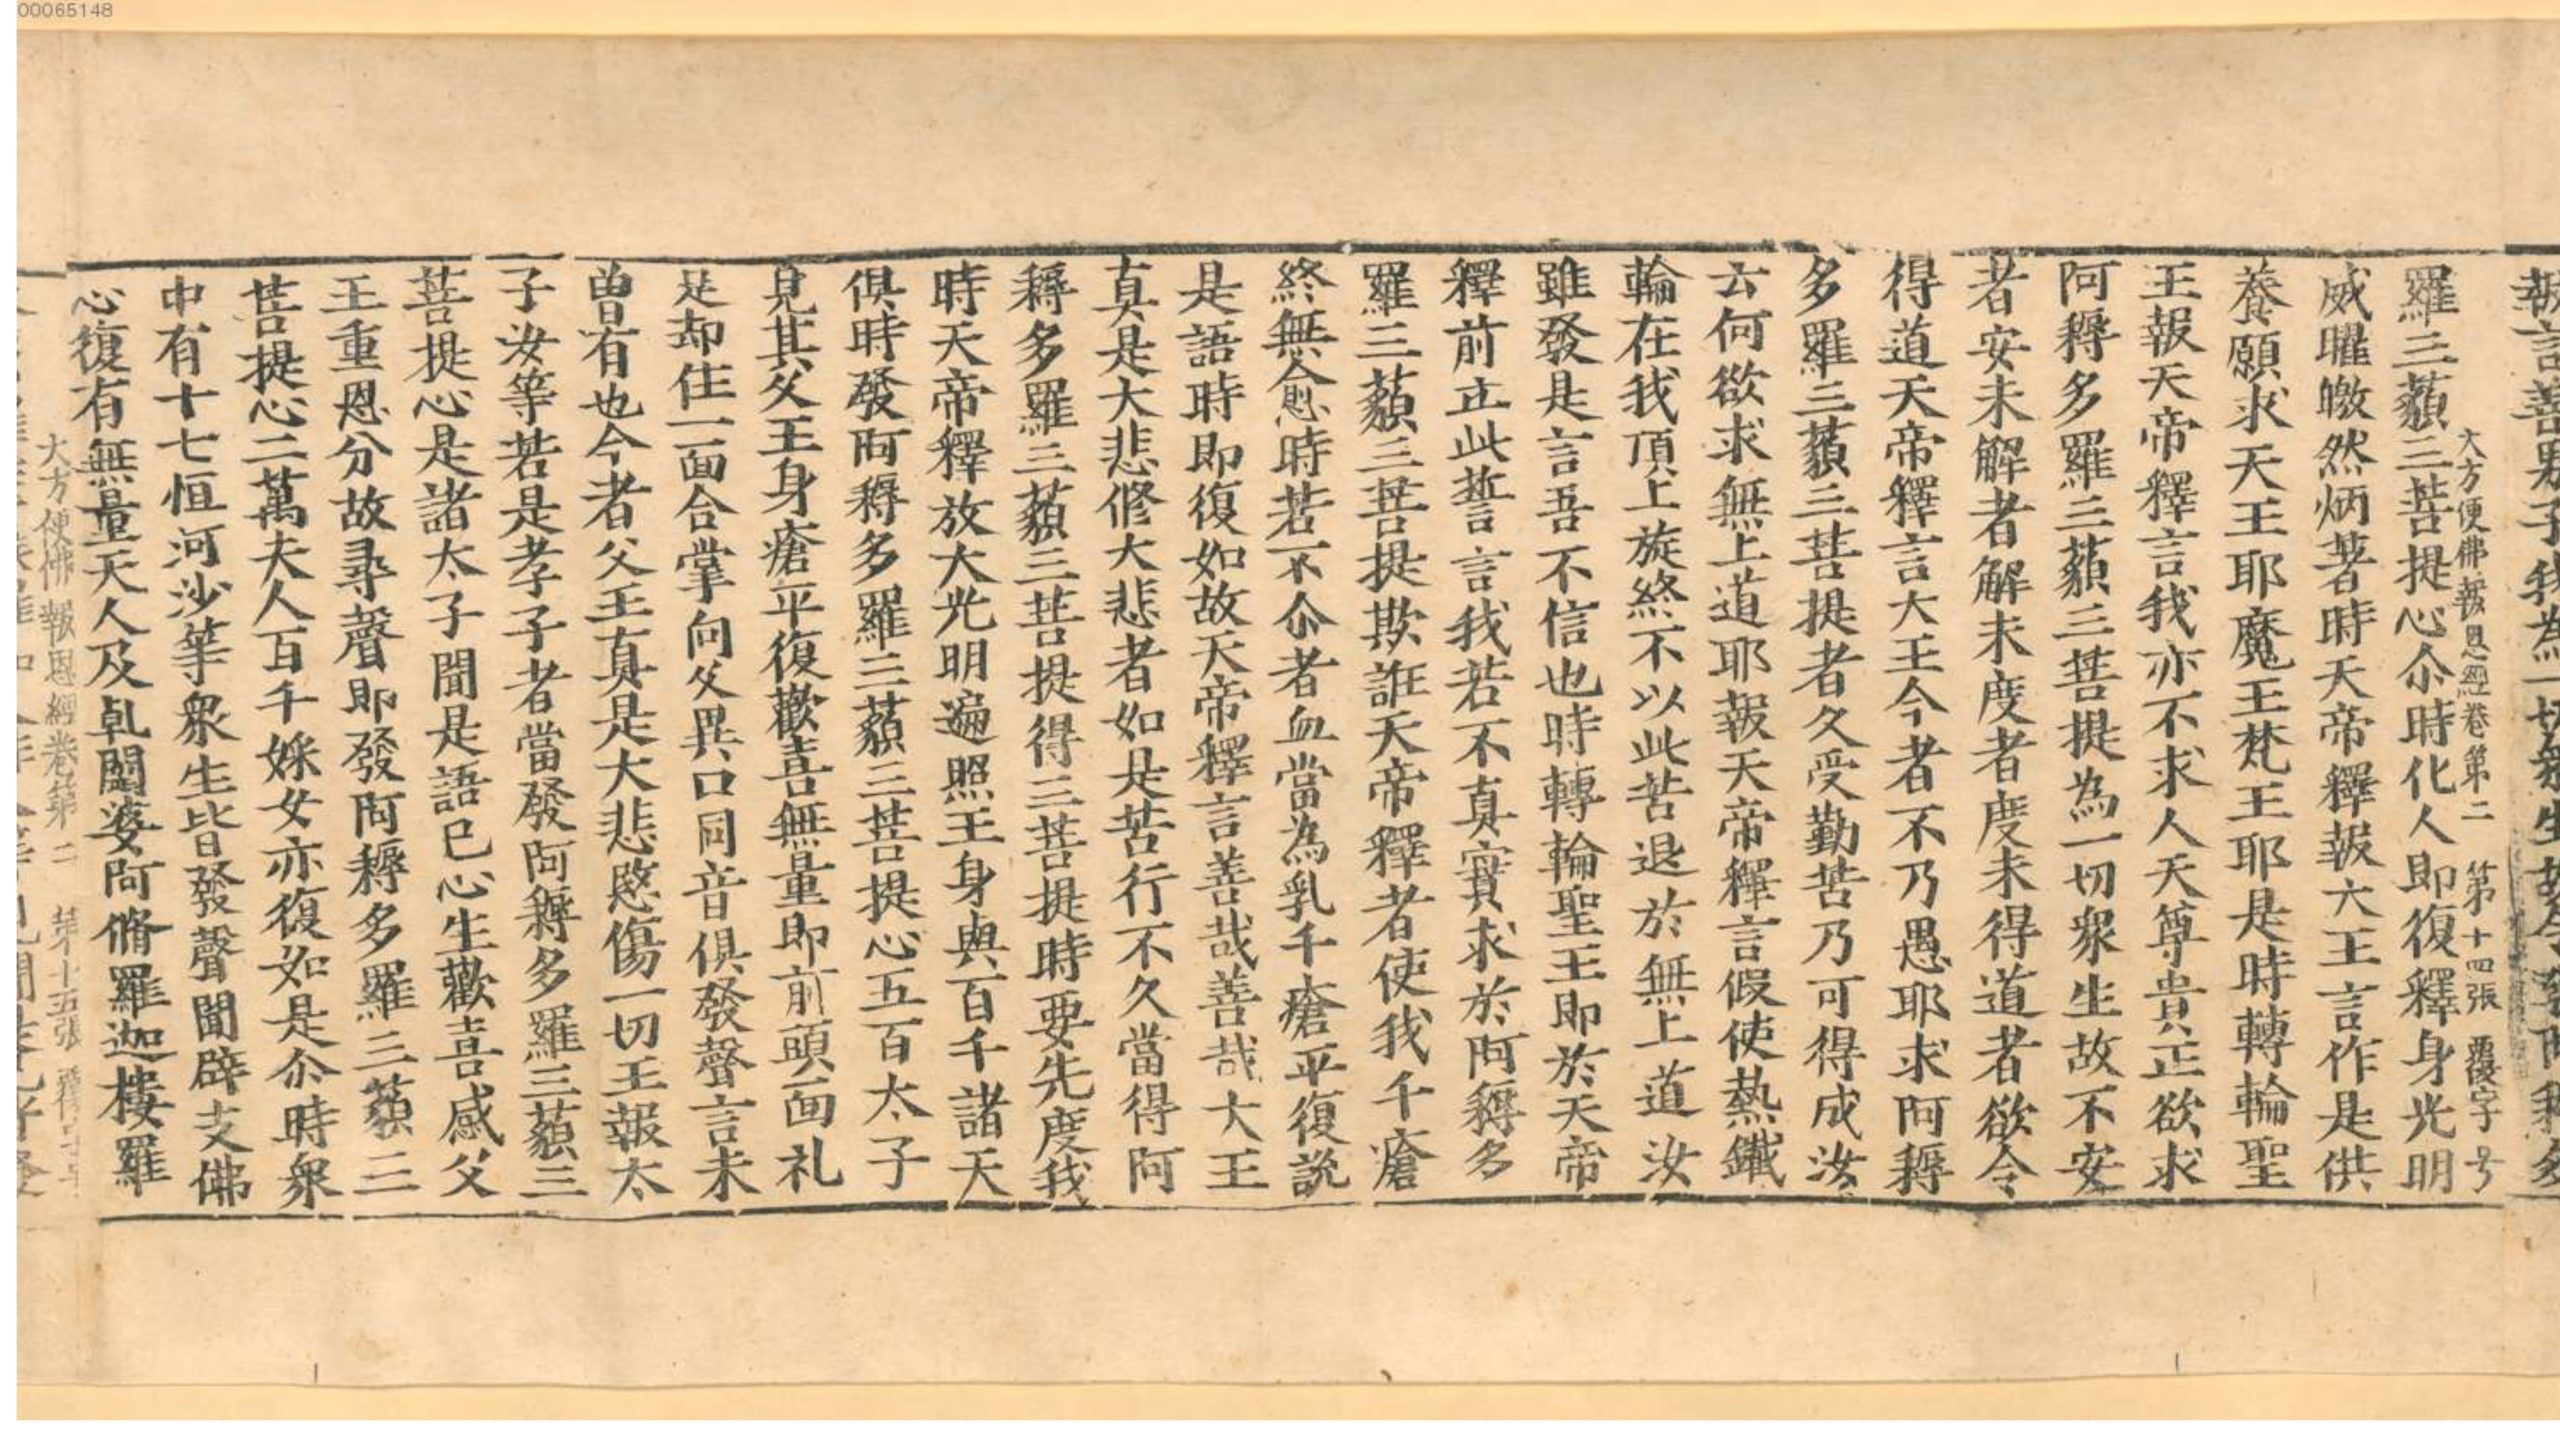 00065148
報言善男子我為一切衆生故令發阿耨多
大方便佛報恩經卷第二 第十四張 覆字号
羅三藐三菩提心尒時化人即復釋身光明
威曜皦然炳著時天帝釋報大王言作是供
養願求天王耶魔王梵王耶是時轉輪聖
王報天帝釋言我亦不求人天尊貴正欲求
阿耨多羅三藐三菩提為一切衆生故不安
者安未解者解未度者度未得道者欲令
得道天帝釋言大王今者不乃愚耶求阿耨
多羅三藐三菩提者久受勤苦乃可得成汝
云何欲求無上道耶報天帝釋言假使熱鐵
輪在我頂上旋終不以此苦退於無上道汝
雖發是言吾不信也時轉輪聖王即於天帝
釋前立此誓言我若不真實求於阿耨多
羅三藐三菩提欺誑天帝釋者使我千瘡
終無愈時若不尒者血當為乳千瘡平復說
是語時即復如故天帝釋言善哉善哉大王
真是大悲修大悲者如是苦行不久當得阿
耨多羅三藐三菩提得三菩提時要先度我
時天帝釋放大光明遍照王身與百千諸天
俱時發阿耨多羅三藐三菩提心五百太子
見其父王身瘡平復歡喜無量即前頭面礼
足却住一面合掌向父異口同音俱發聲言未
曾有也今者父王真是大悲愍傷一切王報太
子汝等若是孝子者當發阿耨多羅三藐三
菩提心是諸太子聞是語已心生歡喜感父
王重恩分故尋聲即發阿耨多羅三藐三
菩提心二萬夫人百千婇女亦復如是尒時衆
中有十七恒河沙等衆生皆發聲聞辟支佛
心復有無量天人及乹闥婆阿脩羅迦樓羅
大方便佛報恩經卷第二 第十五張 覆字号